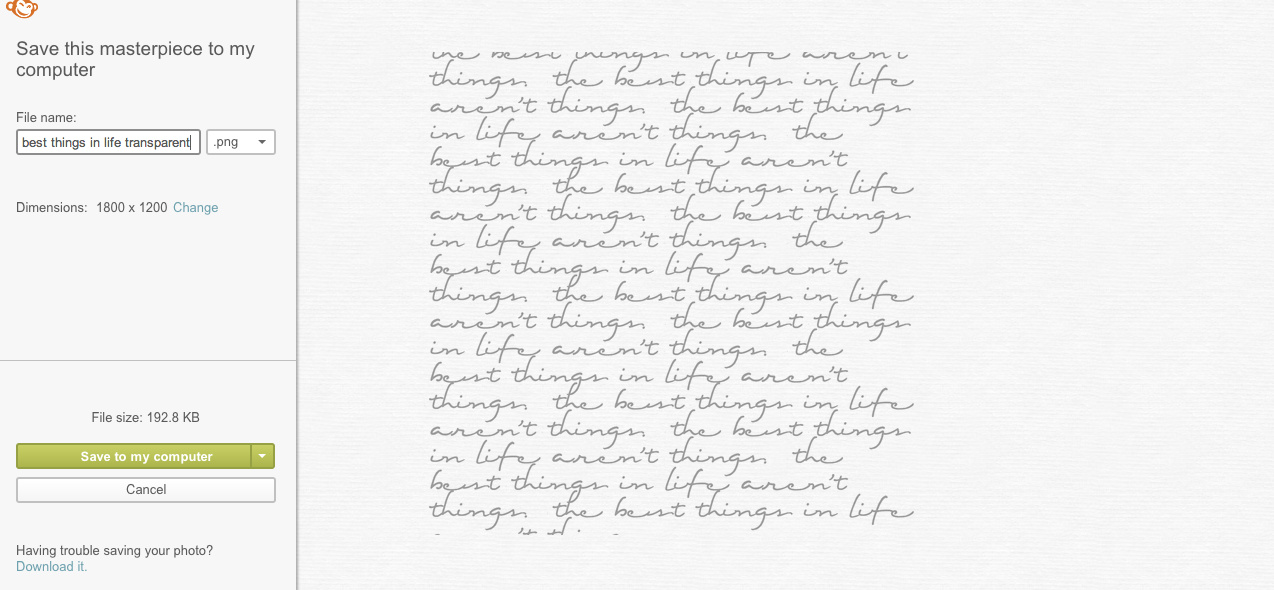 Save this masterpiece to my
computer
File name:
best things in life transparent .png
Dimensions: 1800 x 1200 Change
File size: 192.8 KB
Save to my computer
Cancel
Having trouble saving your photo?
Download it.
the best things in life aren't
things. the best things in life
aren't things. the best things
in life aren't things. the
best things in life aren't
things. the best things in life
aren't things. the best things
in life aren't things. the
best things in life aren't
things. the best things in life
aren't things. the best things
in life aren't things. the
best things in life aren't
things. the best things in life
aren't things. the best things
in life aren't things. the
best things in life aren't
things. the best things in life